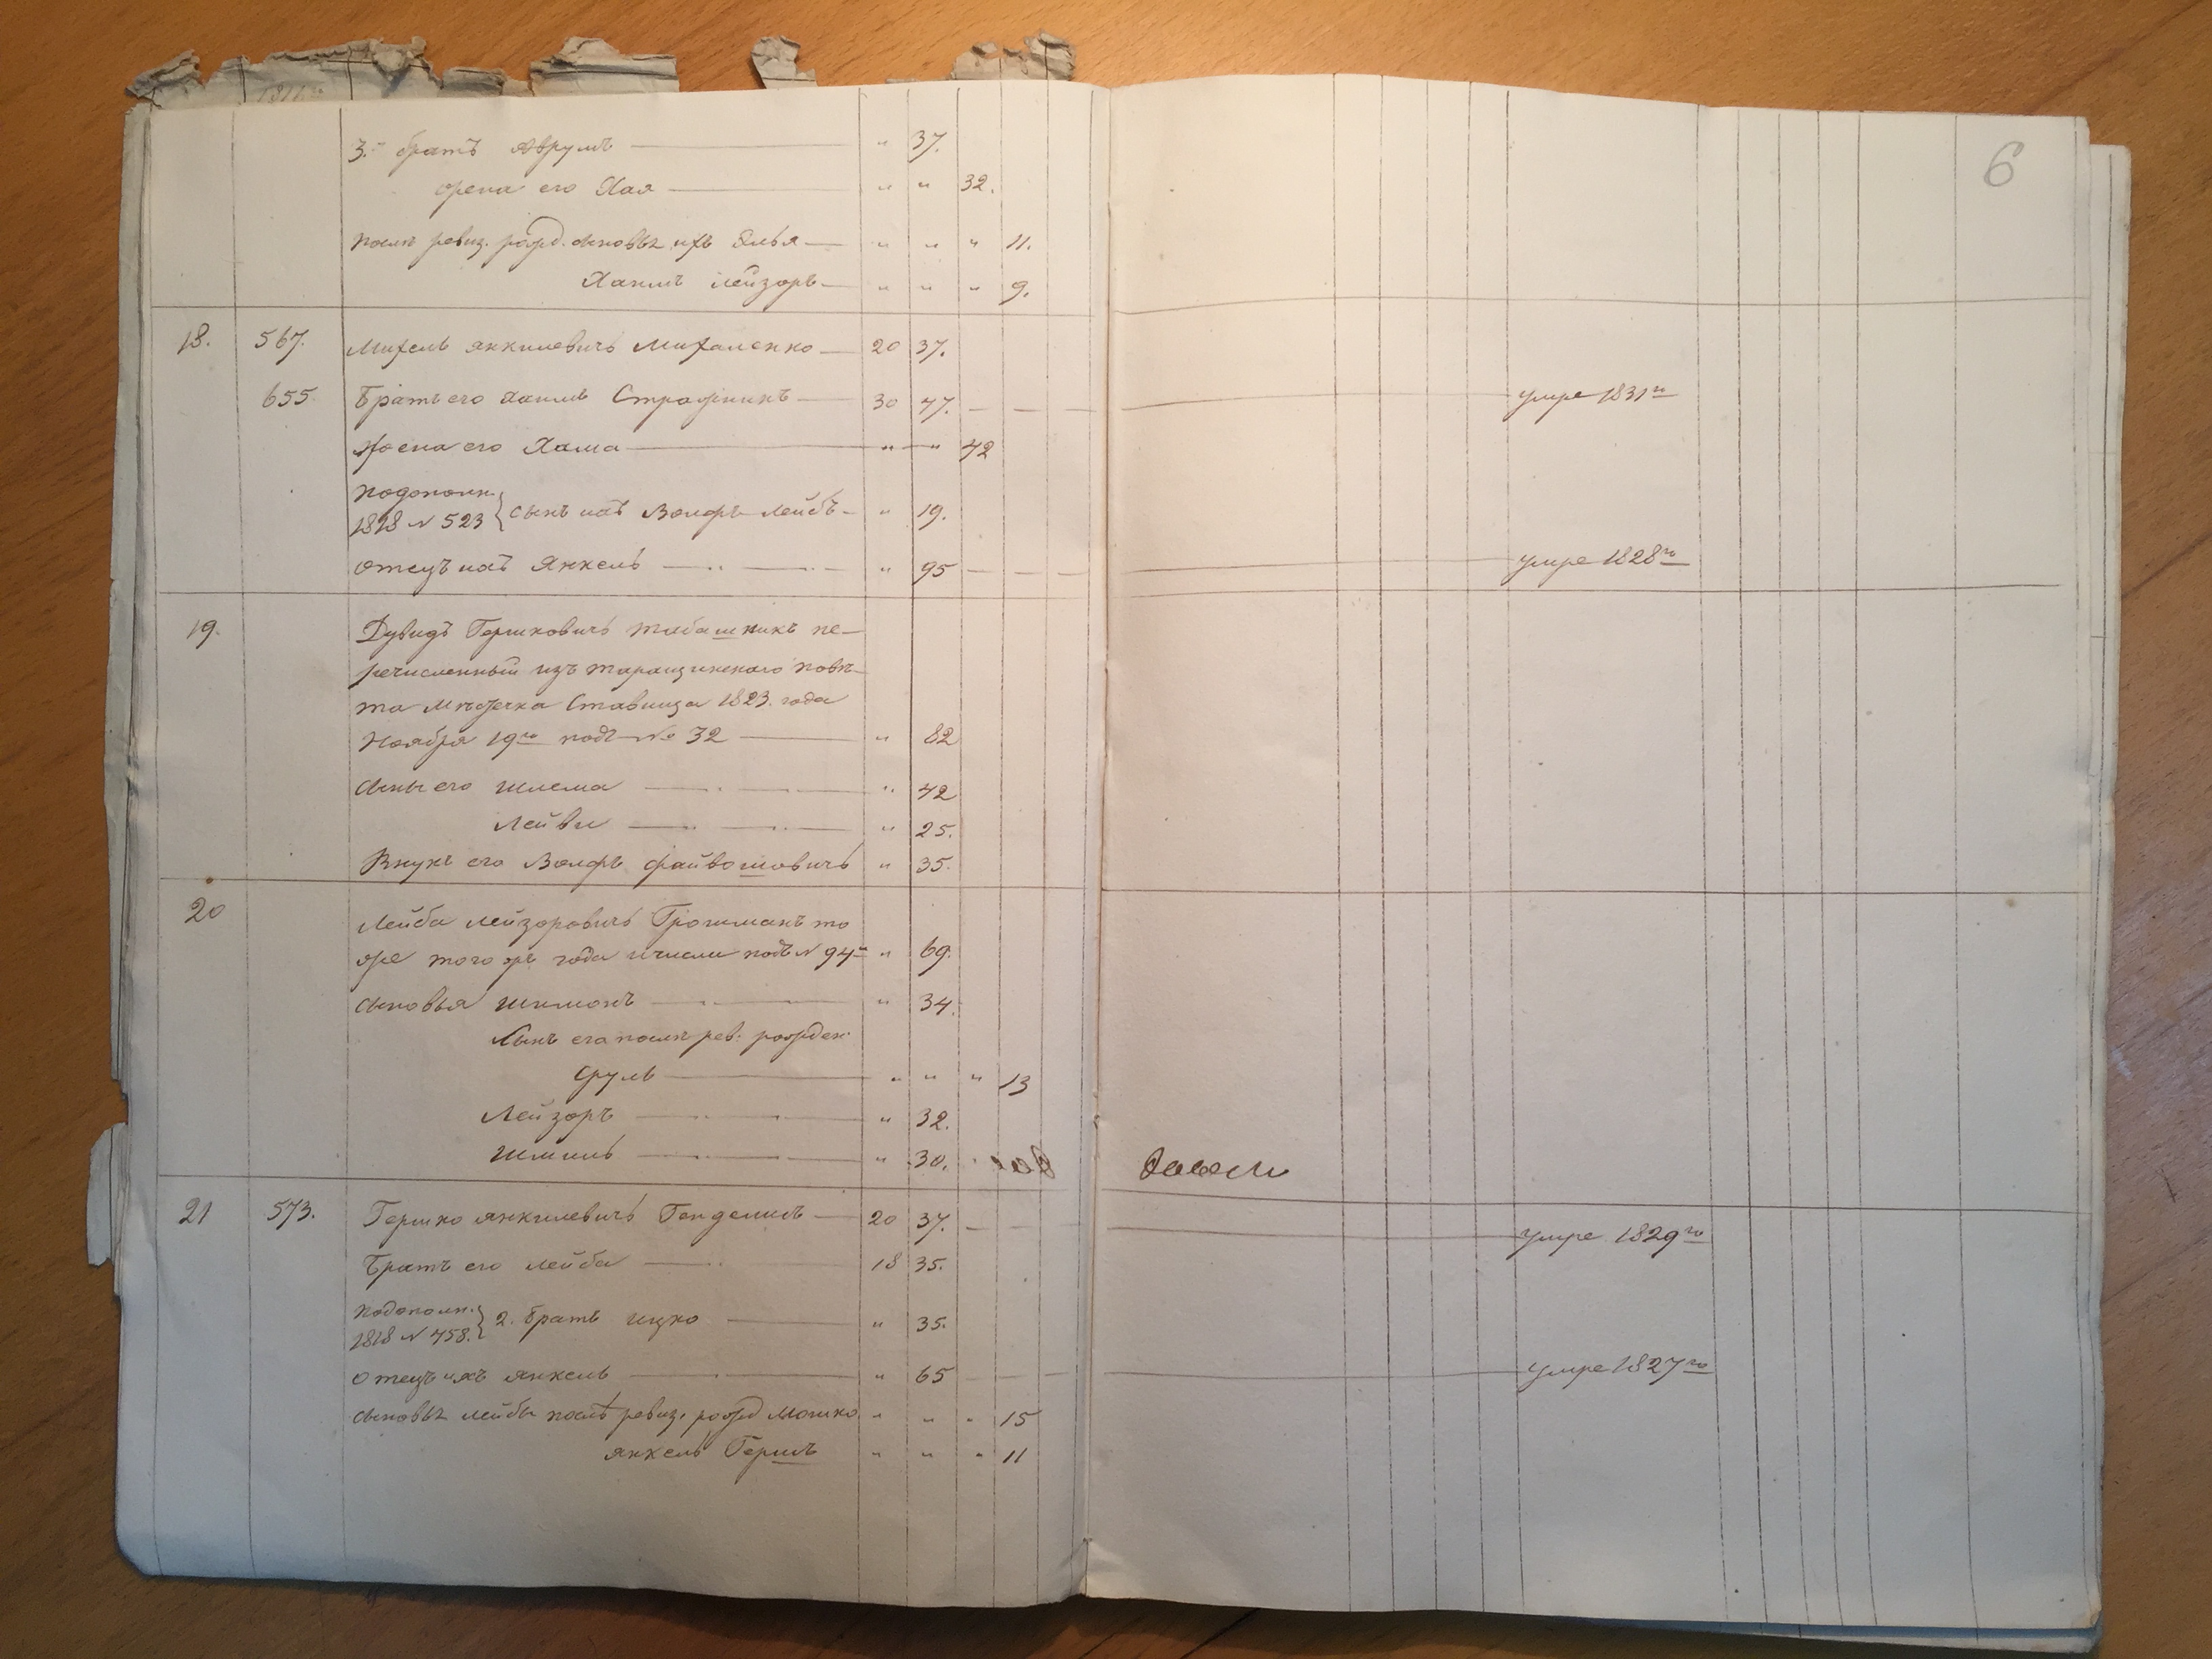 6
3. братъ Аврумъ — " 37.
жена его Хая — " " 32.
послѣ ревиз. рожд. сыновья ихъ Элья — " " " 11.
Хаимъ Лейзоръ — " " " 9.
18. 567. Михель Янкилевичъ Михаленко — 20 37.
655. Братъ его Хаимъ Стражникъ — 30 47. — умре 1831го
Жена его Хама — " " 42
Подополн.
1818 N 523 } сынъ ихъ Волфъ Лейбъ — " 19.
Отецъ ихъ Янкель — " 95 — умре 1828го
19. Дувидъ Гершковичъ Табашникъ пе-
речисленный изъ таращинскаго повѣ-
та мѣстечка Ставища 1823. года
Ноября 19го подъ No 32 — " 82
Сыны его Шлема — " 42
Лейви — " 25.
Внукъ его Волфъ Файвошовичъ " 35.
20 Лейба Лейзоровичъ Гройсманъ то
же того жъ года и числа подъ N 94 " 69.
Сыновья Шимонъ — " 34.
Сынъ его послѣ рев. рожден.
Сруль — " " " 13
Лейзоръ — " 32.
Шмиль — " 30.
21 573. Гершко Янкилевичъ Гендемиъ — 20 37. — умре 1829го
Братъ его Лейба — 18 35.
Подополн.
1818 N 458. } 2. братъ Ицко — " 35.
Отецъ ихъ Янкель — " 65 — умре 1827го
Сыновья Лейбы послѣ ревиз. рожд Мошко " " " 15
Янкель Гершъ " " " 11